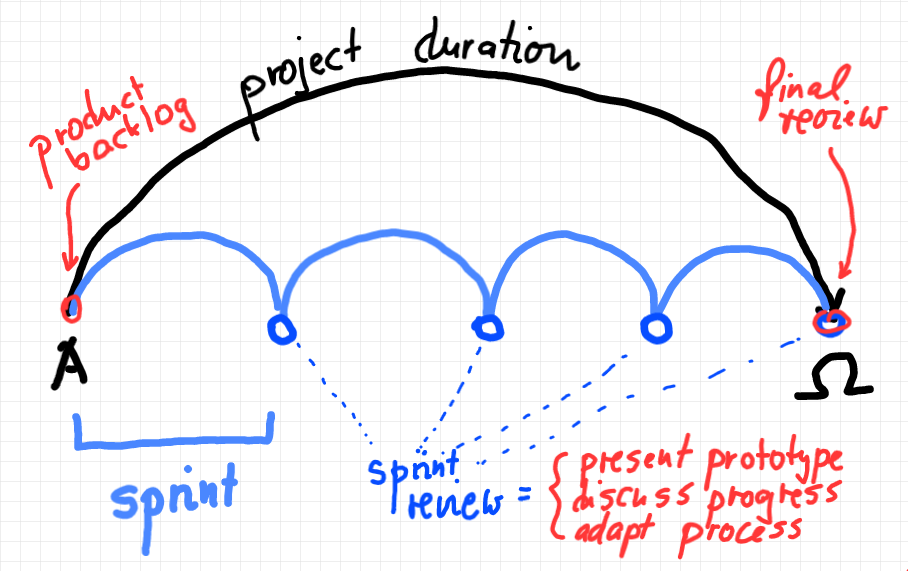 project duration
product
backlog
final
review
A
Ω
sprint
sprint
review =
present prototype
discuss progress
adapt process